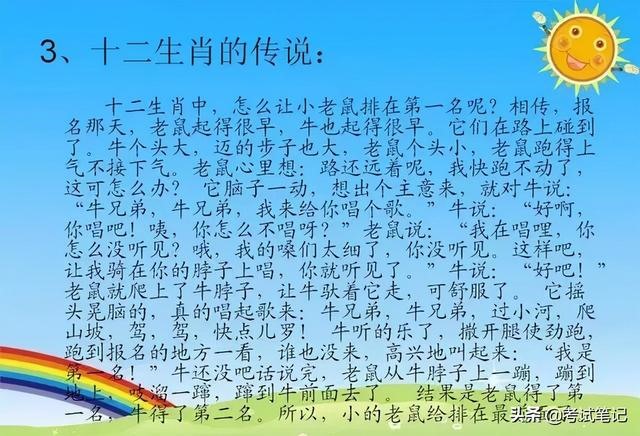 3、十二生肖的传说：
十二生肖中，怎么让小老鼠排在第一名呢？相传，报
名那天，老鼠起得很早，牛也起得很早。它们在路上碰到
了。牛个头大，迈的步子也大，老鼠个头小，老鼠跑得上
气不接下气。老鼠心里想：路还远着呢，我快跑不动了，
这可怎么办？ 它脑子一动，想出个主意来，就对牛说：
“牛兄弟，牛兄弟，我来给你唱个歌。”牛说：“好啊，
你唱吧！咦，你怎么不唱呀？”老鼠说：“我在唱哩，你
怎么没听见？哦，我的嗓们太细了，你没听见。这样吧，
让我骑在你的脖子上唱，你就听见了。”牛说：“好吧！”
老鼠就爬上了牛脖子，让牛驮着它走，可舒服了。它摇
头晃脑的，真的唱起歌来：牛兄弟，牛兄弟，过小河，爬
山坡，驾，驾，快点儿罗！ 牛听的乐了，撒开腿使劲跑，
跑到报名的地方一看，谁也没来，高兴地叫起来：“我是
第一名！”牛还没吧话说完，老鼠从牛脖子上一蹦，蹦到
地上，吱溜一蹿，蹿到牛前面去了。 结果是老鼠得了第
一名，牛得了第二名。所以，小的老鼠给排在最
头条@考试笔记